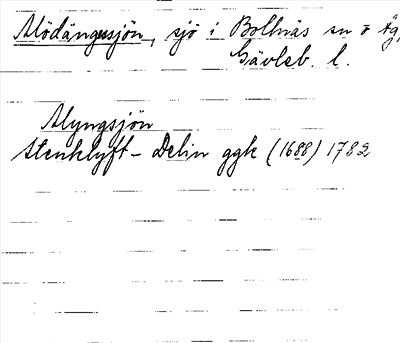 Mödängssjön, sjö i Bollnäs sn o Åg,
Gävleb. l.
Myngsjön
Stenklyft - Delin ggk (1688) 1782